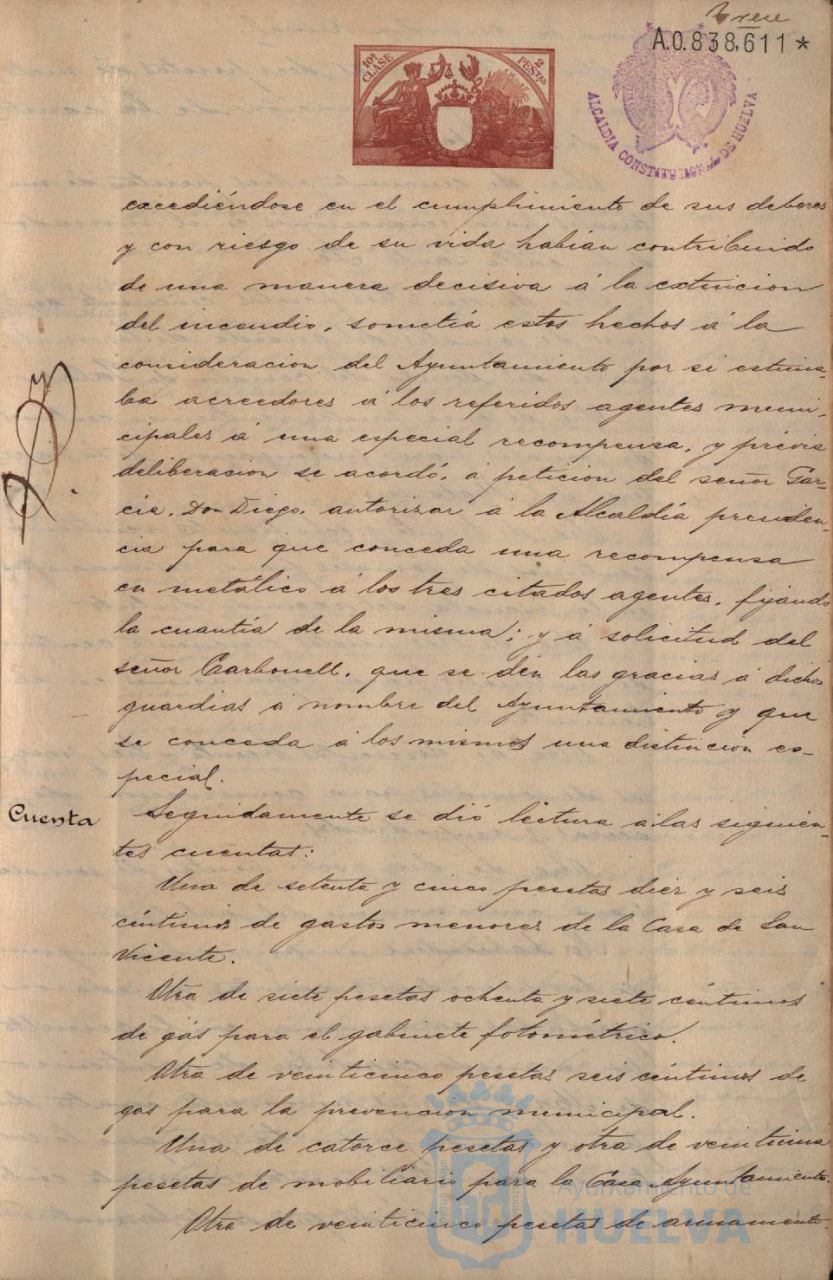 Trece
A.0.838,611*
10ª CLASE
2 PESTAS
ALCALDIA CONSTITUCIONAL DE HUELVA
excediéndose en el cumplimiento de sus deberes
y con riesgo de su vida habían contribuido
de una manera decisiva á la extincion
del incendio, sometía estos hechos á la
consideracion del Ayuntamiento por si estima-
ba acreedores á los referidos agentes muni-
cipales á una especial recompensa, y prévia
deliberacion se acordó, á peticion del señor Gar-
cía, Don Diego, autorizar á la Alcaldía presiden-
cia para que conceda una recompensa
en metálico á los tres citados agentes, fijando
la cuantía de la misma; y á solicitud del
señor Carbonell, que se dén las gracias á dichos
guardias á nombre del Ayuntamiento y que
se conceda á los mismos una distincion es-
pecial.
Cuenta
Seguidamente se dió lectura á las siguien-
tes cuentas:
Una de setenta y cinco pesetas diez y seis
céntimos de gastos menores de la Casa de San
Vicente.
Otra de siete pesetas ochenta y siete céntimos
de gás para el gabinete fotométrico.
Otra de veinticinco pesetas seis céntimos de
gas para la prevencion municipal.
Una de catorce pesetas y otra de veintiuna
pesetas de mobiliario para la Casa Ayuntamiento.
Otra de veinticinco pesetas de armamento
Ayuntamiento de
HUELVA